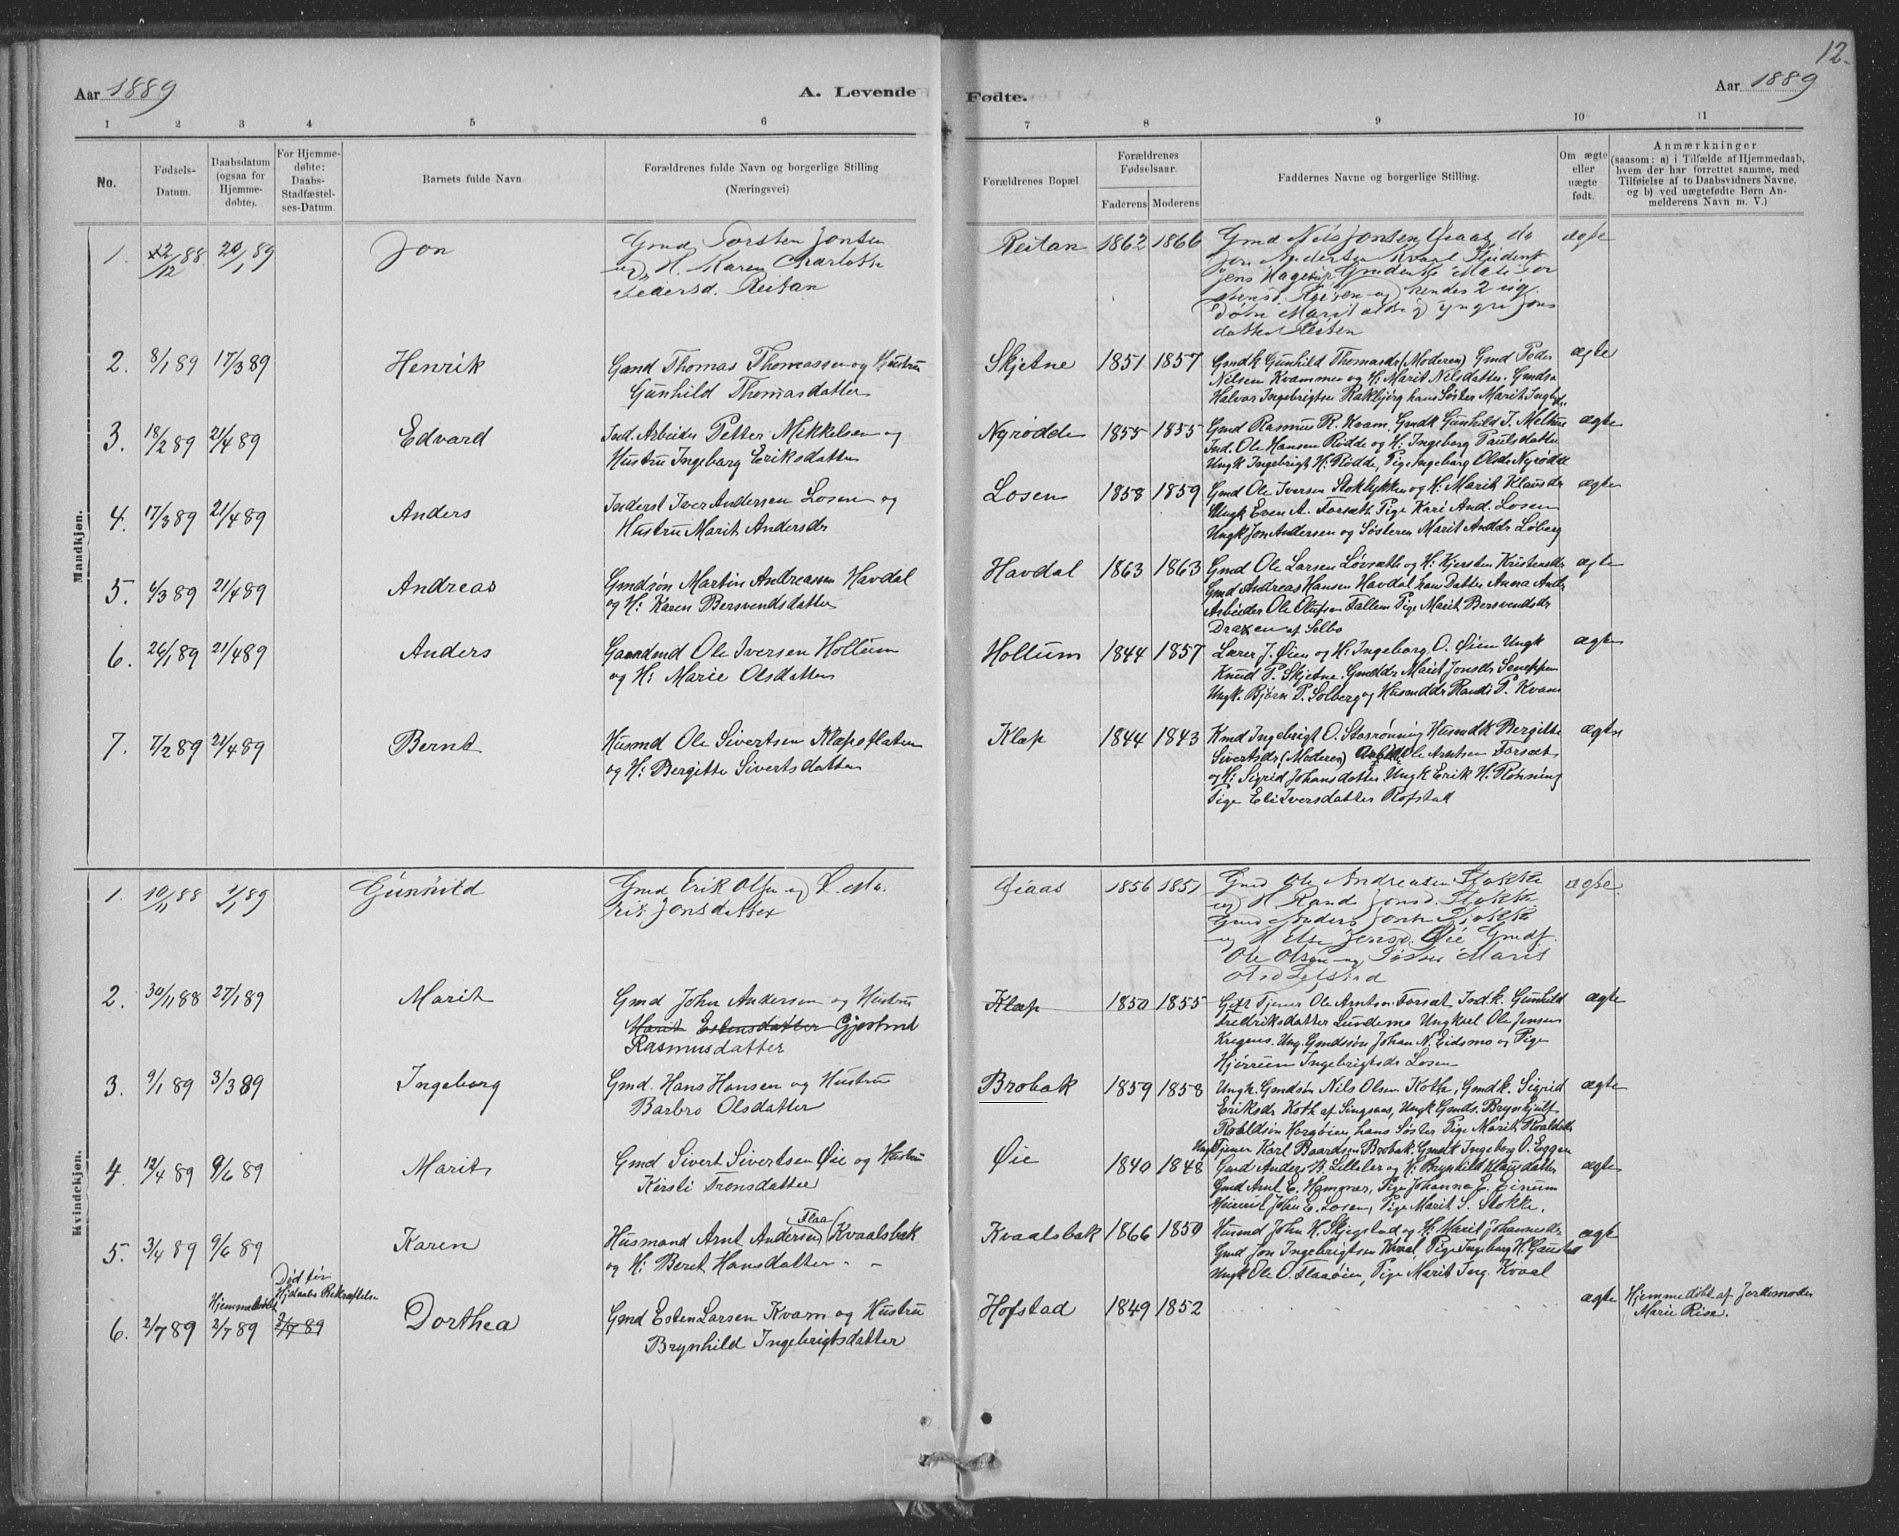 12.
Aar 1889
A. Levende
Fødte.
Aar 1889
1 2 3 4 5 6 7 8 9 10 11
No.
Fødsels-
Datum.
Daabsdatum
(ogsaa for
Hjemme-
døbte).
For Hjemme-
døbte:
Daabs-
Stadfæstel-
ses-Datum.
Barnets fulde Navn
Forældrenes fulde Navn og borgerlige Stilling
(Næringsvei)
Forældrenes Bopæl
Forældrenes
Fødselsaar.
Faderens Moderens
Faddernes Navne og borgerlige Stilling.
Om ægte
eller
uægte
født.
Anmærkninger
(saasom: a) i Tilfælde af Hjemmedaab,
hvem der har forrettet samme, med
Tilføielse af to Daabsvidners Navne,
og b) ved uægtefødte Børn An-
melderens Navn m. V.)
Mandkjøn.
1. 22/12 88. 20/1 89 Jon
Gmd Torsten Jonsen
og H. Karen Charlotte
Pedersd. Reitan
Reitan 1862 1866
Gmd Nils Jonsen Graas do
Jon Andersen Kvarl Student
Jens Hagerup
og hendes 2 ug.
Døtre Marit ældre og yngre Jons
datter Reitan
ægte
2. 8/1 89 17/3 89 Henrik
Gmd Thomas Thomassen og Hustru
Gunhild Thomasdatter
Skjetne 1851 1857
Gmdk Gunhild Thomasdr (Moderen) Gmd Peder
Nilsen Kvammen og H: Marit Nilsdatter. Gmdsø
Halvor Ingebrigtsen Rakbjørg hans Søster Marit Ingbd.
ægte
3. 18/2 89 21/4 89 Edvard
Ind. Arbeider Petter Mikkelsen og
Hustru Ingeborg Eriksdatter
Nyrødde 1855 1855
Gmd Rasmus R. Kvam. Gmdk Gunhild I. Melhus
Ind. Ole Hansen Rødde og H: Ingeborg Paulsdatter
Ungk Ingebrigt H: Rødde, Pige Ingeborg Olsdr Nyrødde
ægte
4. 17/3 89 21/4 89 Anders
Inderst Iver Andersen Losen og
Hustru Marit Andersdr
Losen 1858 1859
Gmd Ole Iversen Stoklykken og H: Marit Klausdr
Ungk Even A. Forsæth Pige Kari And. Losen
Ungk Jon Andersen og Søsteren Marit Anddr Løberg
ægte
5. 4/3 89 21/4 89 Andreas
Gmdsøn Martin Andreassen Havdal
og H: Karen Bersvendsdatter
Havdal 1863 1863
Gmd Ole Larsen Løvsæth og H: Kjersten Kristensdr
Gmd Andreas Hansen Havdal hans Datter Anna Andr
Arbeider Ole Olufsen Tallem Pige Marit Bersvendsdr
Draxen af Selbo
ægte
6. 26/1 89 21/4 89 Anders
Gaardmd Ole Iversen Hollum
og H: Marie Olsdatter
Hollum 1844 1857
Lærer J. Øien og H: Ingeborg O. Øien Ungk
Knud P. Skjetne. Gmddr Marit Jonsdr Leneppen
Ungk. Bjørn P. Solberg og Husmddr Randi P. Kvam
ægte
7. 7/2 89 21/4 89 Bernt
Husmd Ole Sivertsen Klæpsflaten
og H: Bergitte Sivertsdatter
Klæp 1844 1843
Kmd Ingebrigt O. Storrønning Husmdk Bergitte
Sivertsdr (Moderen) Arbeider Ole Arntsen Forsæt
og H: Sigrid Johansdatter Ungk Erik H. Rønning
Pige Eli Iversdatter Rofstad
ægte
Kvindekjøn.
1. 10/11 88 1/1 89 Gunhild
Gmd Erik Olsen og H. Ma
rit Jonsdatter
Graas 1856 1851
Gmd Ole Andreasen Stokke
og H Rand Jonsd. Stokke
Gmd Anders Jonsen Stokke
og H Else Jensd. Øie Gmdf.
Ole Olsen og Søster Marit
ægte.
2. 30/11 88 27/1 89 Marit
Gmd John Andersen og Hustru
Marit Estensdatter Gjertrud
Rasmusdatter
Klæp 1850 1855
Gift Tjener Ole Arntsen Forsæt Ind.k. Gunhild
Fredriksdatter Lundemo Ungkarl Ole Jensen
Kregnes. Ung. Gmdssøn Johan N. Eidsmo og Pige
Hjørrun Ingebrigtsdr Losen
ægte
3. 9/1 89 3/3 89 Ingeborg
Gmd. Hans Hansen og Hustru
Barbro Olsdatter
Brobak 1859 1858
Ungk. Gmdsøn Nils Olsen Koth, Gmdk. Sigrid
Eriksdr Koth af Singsaas, Ungk Gmds. Brynhjulf
Roaldsøn Horgøien, hans Søster Pige Marit Roaldsdr
Ungk Tjener Karl Baardsen Brobak. Gmdk Ingeborg O. Eggen
ægte
4. 12/4 89 9/6 89 Marit
Gmd Sivert Sivertsen Øie og Hustru
Kirsti Tronsdatter
Øie 1840 1848
Gmd Anders B. Lilleler og H: Brynhild Klausdatter
Gmd Arnt E. Hamnær, Pige Johanna E. Joinum
John E. Losen, Pige Marit S. Stokke.
ægte
5. 3/4 89 9/6 89 Karen
Husmand Arnt Andersen (Flaa) Kvaalsbak
og H: Beret Hansdatter - -
Kvaalsbak 1866 1850
Husmd John H. Skjegstad og H: Marit Johannesdr
Gmd Jon Ingebrigtsen Kvaal, Pige Ingeborg H. Gaustad
Ungk Ole O. Flaaøien, Pige Marit Ing. Kvaal
ægte
6. 2/7 89 Hjemmedøbt 2/7 89 Død før Hjdaabs Bekræftelse 2/7 89 Dorthea
Gmd Esten Larsen Kvam og Hustru
Brynhild Ingebrigtsdatter
Hofstad 1849 1852
ægte
Hjemmedøbt af Jordemoder
Marie Rise.